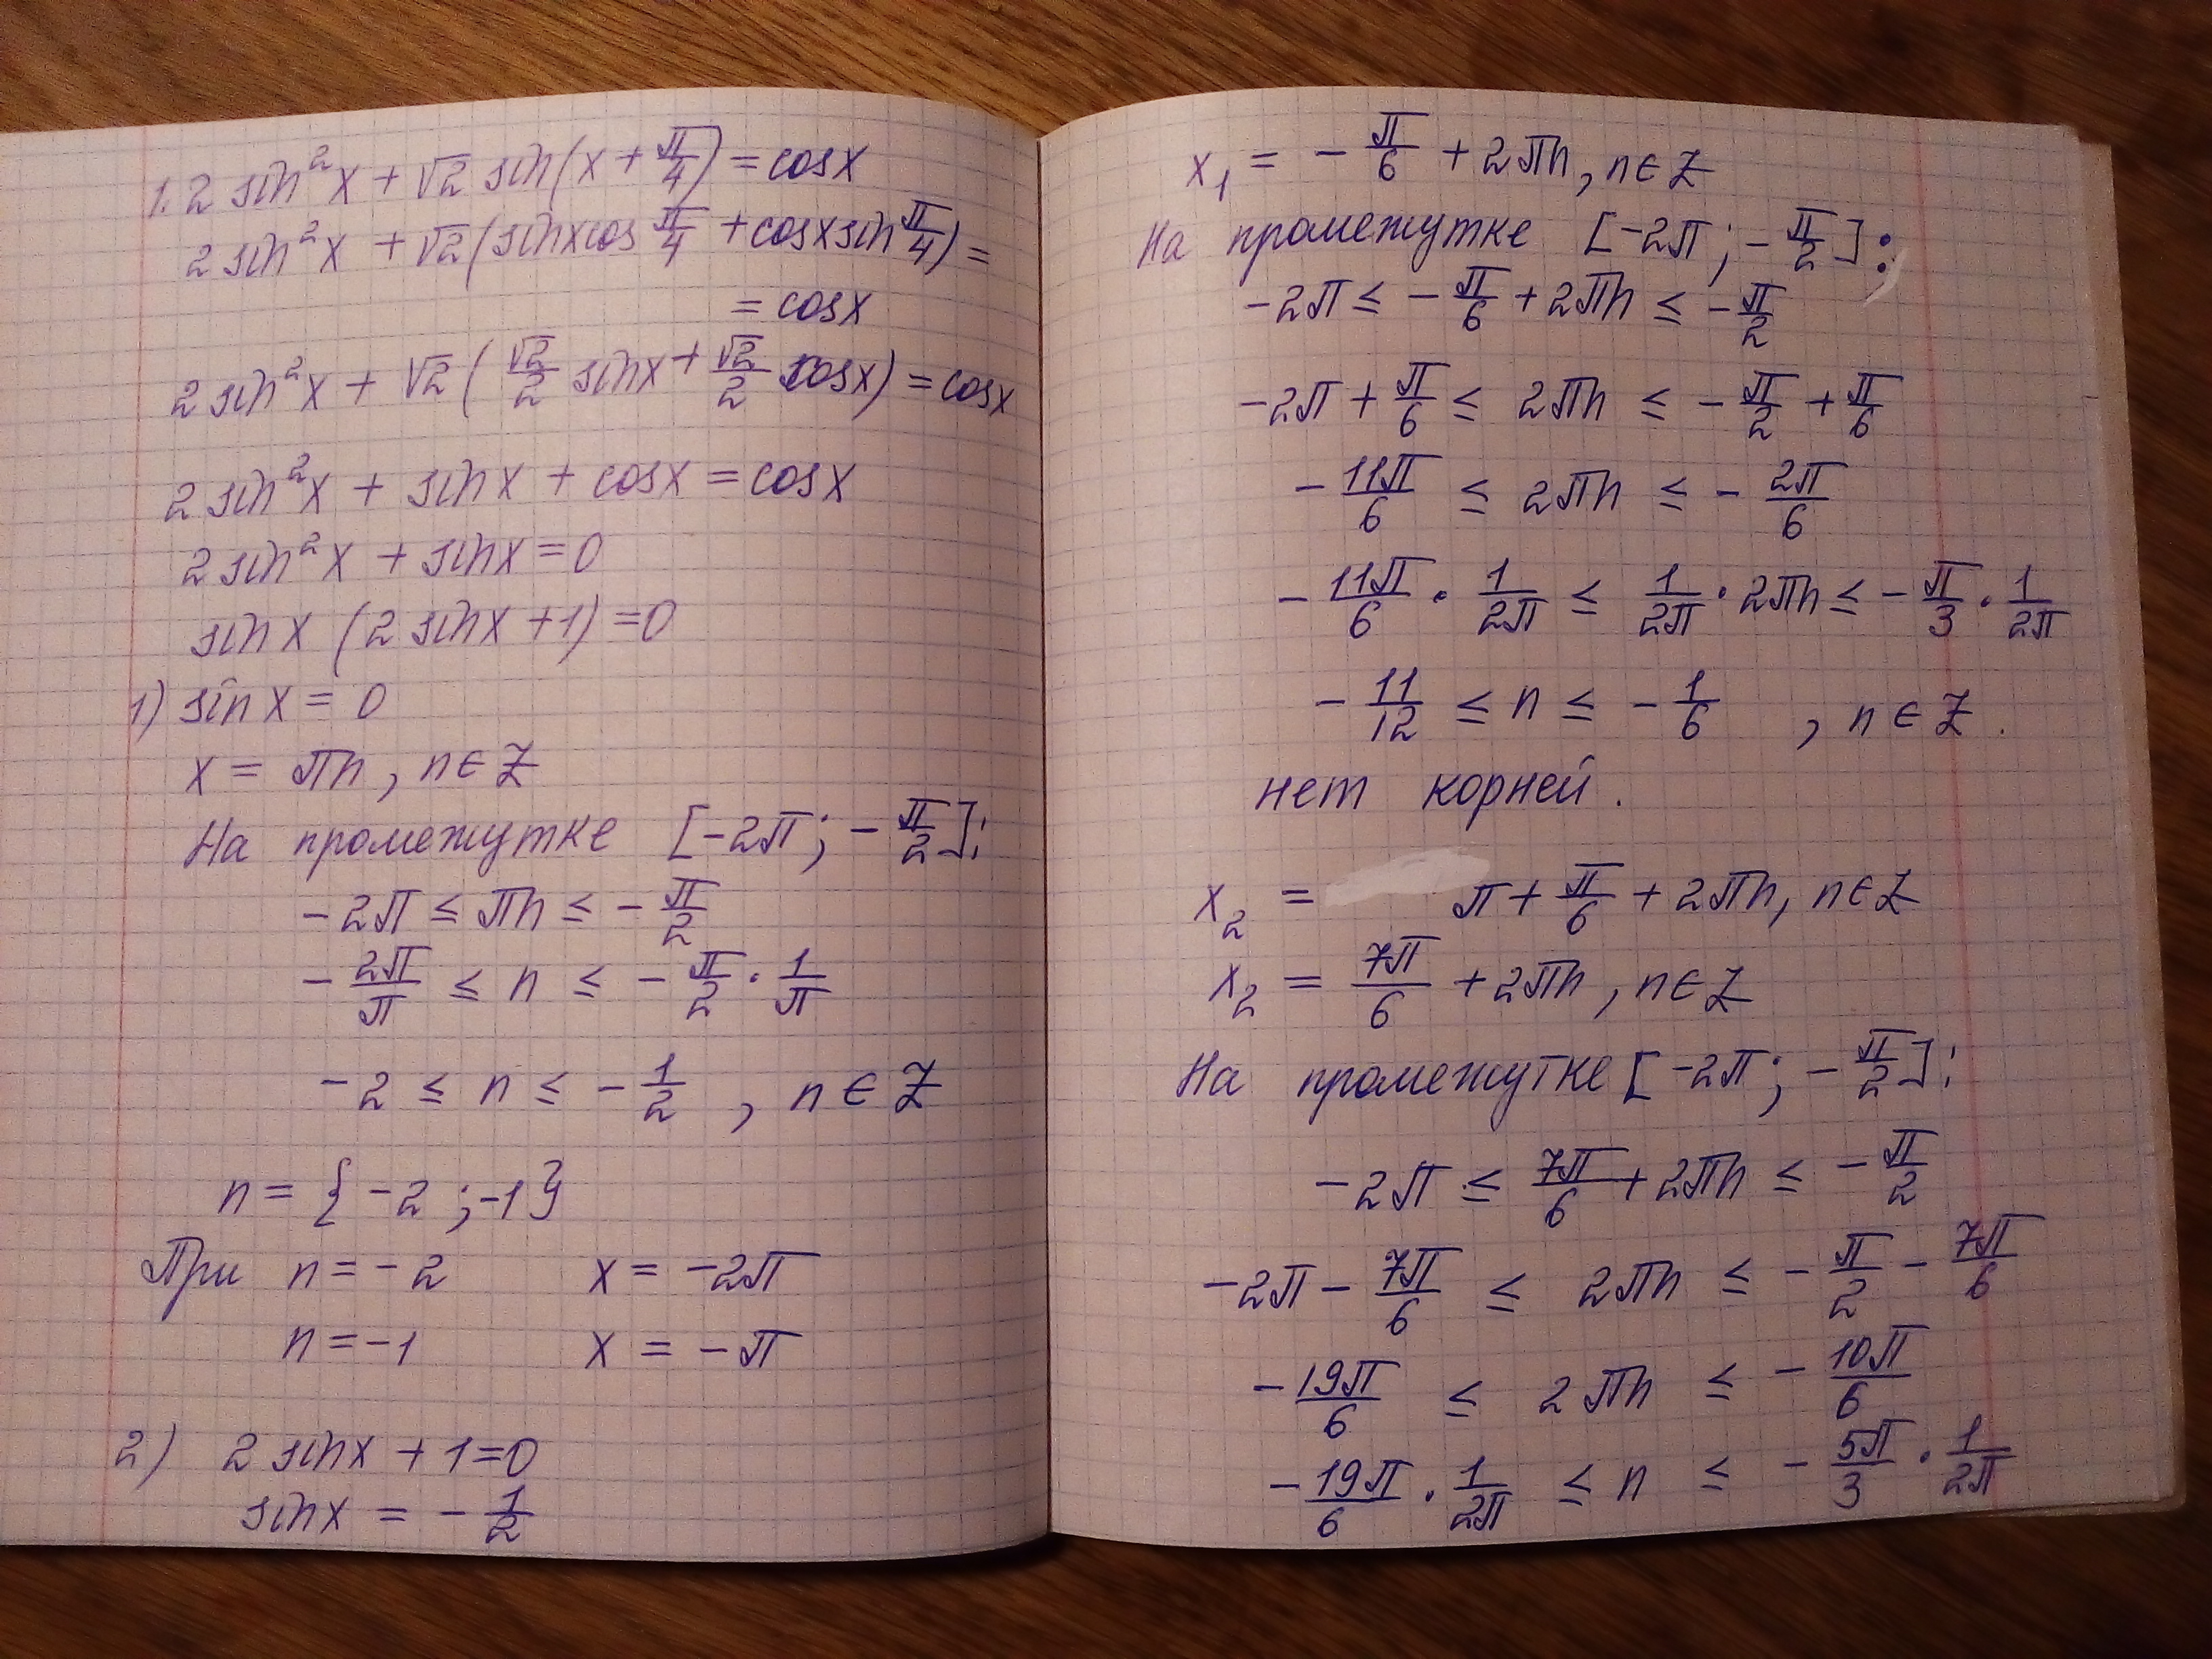 1. 2 sin²x + √2 sin(x + π/4) = cosx
2 sin²x + √2 (sinxcos π/4 + cosxsin π/4) =
= cosx
2 sin²x + √2 (√2/2 sinx + √2/2 cosx) = cosx
2 sin²x + sinx + cosx = cosx
2 sin²x + sinx = 0
sinx (2 sinx + 1) = 0
1) sinx = 0
x = πn, n ∈ Z
На промежутке [-2π; -π/2]:
-2π ≤ πn ≤ -π/2
-2π/π ≤ n ≤ -π/2 · 1/π
-2 ≤ n ≤ -1/2 , n ∈ Z
n = {-2 ; -1}
При n = -2 x = -2π
n = -1 x = -π
2) 2 sinx + 1 = 0
sinx = -1/2
x₁ = -π/6 + 2πn, n ∈ Z
На промежутке [-2π; -π/2]:
-2π ≤ -π/6 + 2πn ≤ -π/2
-2π + π/6 ≤ 2πn ≤ -π/2 + π/6
-11π/6 ≤ 2πn ≤ -2π/6
-11π/6 · 1/2π ≤ 1/2π · 2πn ≤ -π/3 · 1/2π
-11/12 ≤ n ≤ -1/6 , n ∈ Z.
нет корней.
x₂ = π + π/6 + 2πn, n ∈ Z
x₂ = 7π/6 + 2πn, n ∈ Z
На промежутке [-2π; -π/2]:
-2π ≤ 7π/6 + 2πn ≤ -π/2
-2π - 7π/6 ≤ 2πn ≤ -π/2 - 7π/6
-19π/6 ≤ 2πn ≤ -10π/6
-19π/6 · 1/2π ≤ n ≤ -5π/3 · 1/2π